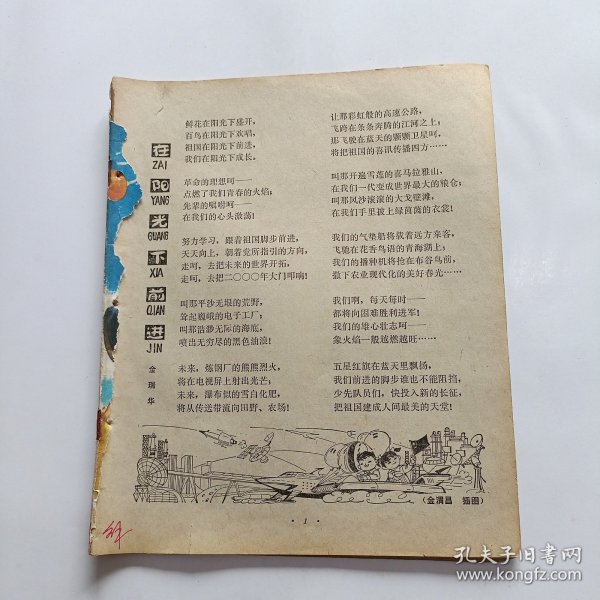 在
ZAI
阳
YANG
光
GUANG
下
XIA
前
QIAN
进
JIN
金瑞华
鲜花在阳光下盛开,
百鸟在阳光下欢唱,
祖国在阳光下前进,
我们在阳光下成长。
革命的理想呵——
点燃了我们青春的火焰;
先辈的嘱咐呵——
在我们的心头激荡!
努力学习,跟着祖国脚步前进,
天天向上,朝着党所指引的方向,
走呵,去把未来的世界开拓,
走呵,去把二〇〇〇年大门叩响!
叫那平沙无垠的荒野,
耸起巍峨的电子工厂;
叫那浩渺无际的海底,
喷出无穷尽的黑色油浪!
未来,炼钢厂的熊熊烈火,
将在电视屏上射出光芒;
未来,瀑布似的雪白化肥,
将从传送带流向田野、农场!
让那彩虹般的高速公路,
飞跨在条条奔腾的江河之上;
那飞驶在蓝天的颗颗卫星呵,
将把祖国的喜讯传播四方……
叫那开遍雪莲的喜马拉雅山,
在我们一代变成世界最大的粮仓;
叫那风沙滚滚的大戈壁滩,
在我们手里披上绿茵茵的衣裳!
我们的气垫船将载着远方来客,
飞驰在花香鸟语的青海湖上;
我们的播种机将抢在布谷鸟前,
撒下农业现代化的美好春光……
我们啊,每天每时——
都将向困难胜利进军!
我们的雄心壮志呵——
象火焰一般越燃越旺……
五星红旗在蓝天里飘扬,
我们前进的脚步谁也不能阻挡,
少先队员们,快投入新的长征,
把祖国建成人间最美的天堂!
(金清昌 插图)
· 1 ·
孔夫子旧书网
www.kongfz.com